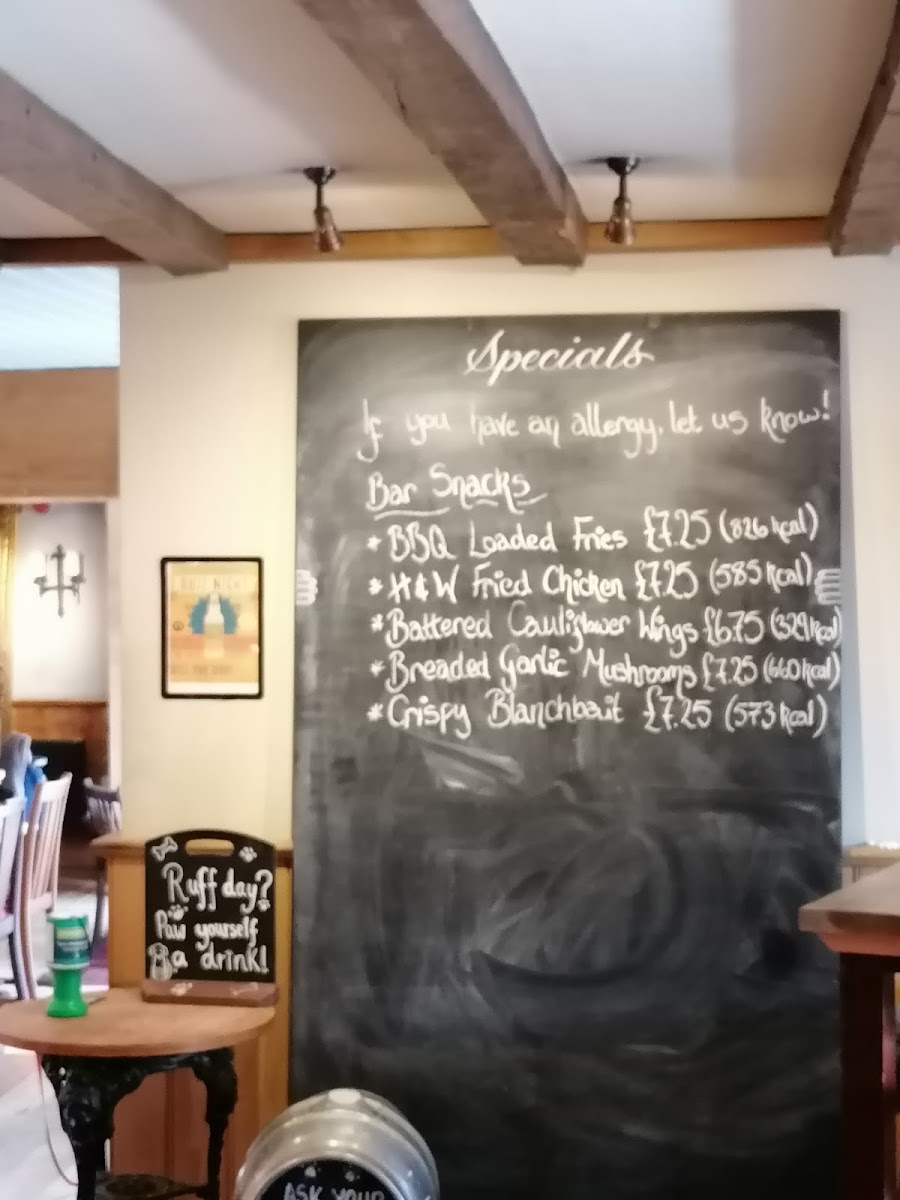 Specials
If you have an allergy, let us know!
Bar Snacks
* BBQ Loaded Fries £7.25 (826 kcal)
* H & W Fried Chicken £7.25 (585 kcal)
* Battered Cauliflower Wings £6.75 (329 kcal)
* Breaded Garlic Mushrooms £7.25 (660 kcal)
* Crispy Blanchbait £7.25 (573 kcal)
Ruff day?
Paw yourself
a drink!
ASK YOUR